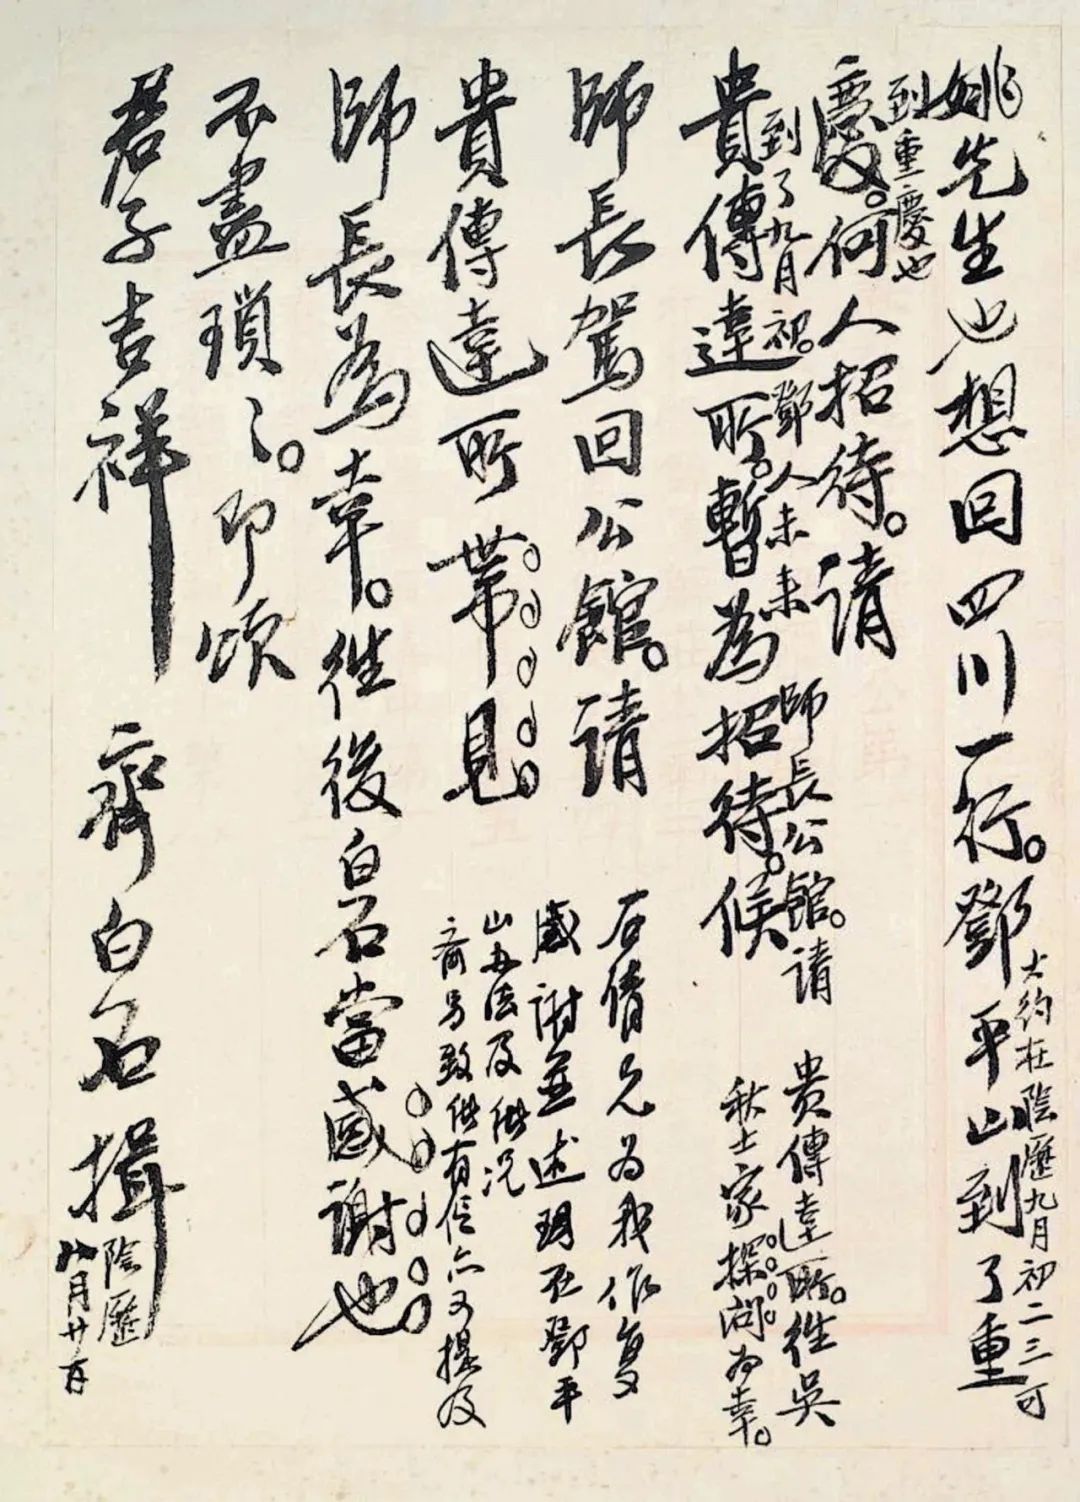 姚先生也想回四川一行。鄧平山到了重
大約在陰曆九月初二三可
到重慶也
慶。何人招待。请
貴傳達所。暫為招待。候
到了九月初。鄧人未来
師長公館。请
貴傳達所。往吳
秋士家探问。为幸。
師長駕回公館。请
貴傳達所帶見
師長為幸。往後白石當感謝也
不盡瑣々。即頌
君子吉祥
齊白石揖
陰曆
八月廿日
石倩兄为我作复
感谢並述明在鄧平
山办法及
齊另致供有信亦又提及